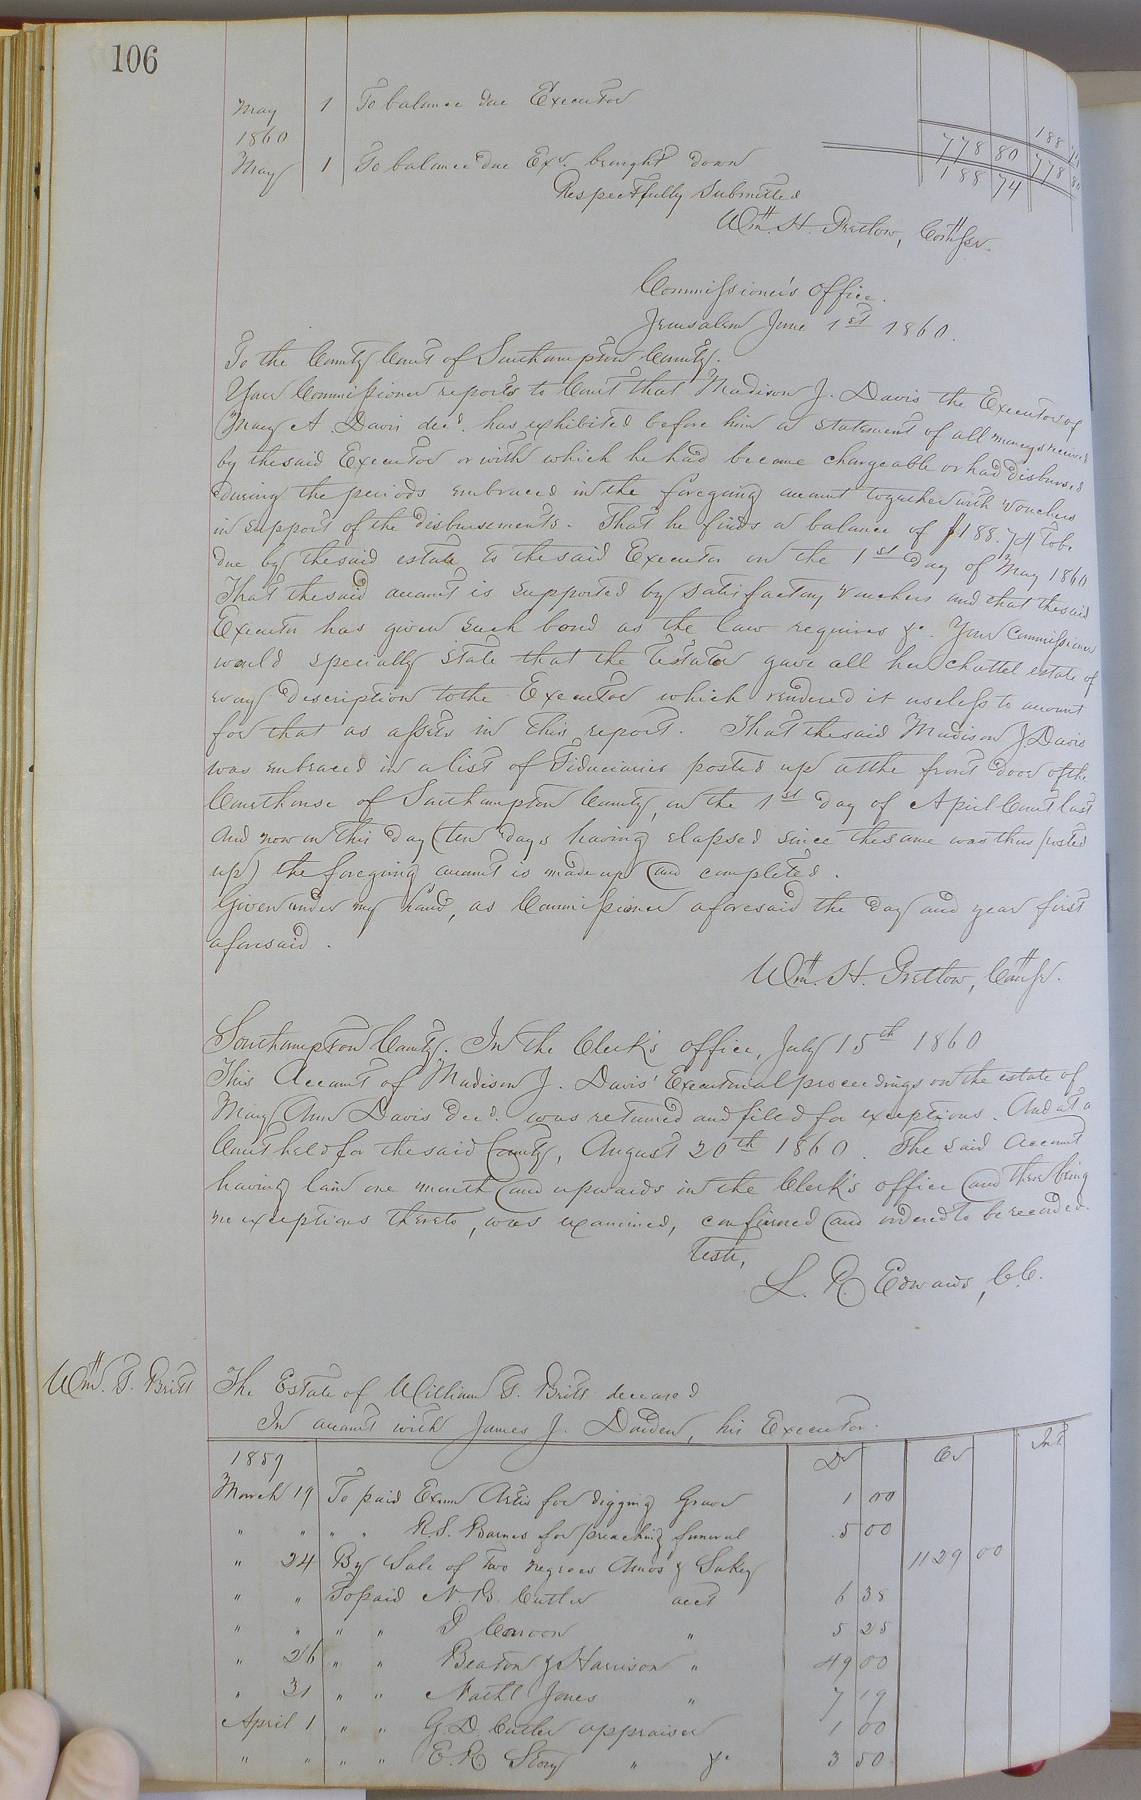 106
May 1 To balance due Executor 188 74
1860 778 80 778 80
May 1 To balance due Exr. brought down 188 74
Respectfully Submitted
Wm. H. Pretlow, Commissr.
Commissioner's Office.
Jerusalem June 1st 1860.
To the County Court of Southampton County.
Your Commissioner reports to Court that Madison J. Davis the Executor of
Mary A. Davis decd. has exhibited before him a statement of all moneys received
by the said Executor or with which he had become chargeable or had disbursed
during the periods embraced in the foregoing account together with vouchers
in support of the disbursements. That he finds a balance of $188.74 to be
due by the said estate to the said Executor on the 1st day of May 1860
That the said account is supported by satisfactory vouchers and that the said
Executor has given such bond as the law requires &c. Your Commissioner
would specially state that the testator gave all her chattel estate of
every description to the Executor which rendered it useless to account
for that as assets in this report. That the said Madison J Davis
was embraced in a list of Fiduciaries posted up at the front door of the
Courthouse of Southampton County, on the 1st day of April Court last
and now on this day (ten days having elapsed since the same was thus posted
up) the foregoing account is made up and completed.
Given under my hand, as Commissioner aforesaid the day and year first
aforesaid.
Wm. H. Pretlow, Comssr.
Southampton County. In the Clerk's office, July 15th 1860
This Account of Madison J. Davis' Executorial proceedings on the estate of
Mary Ann Davis decd. was returned and filed for exceptions. And at a
Court held for the said County, August 20th 1860. The said Account
having lain one month and upwards in the Clerk's office and there being
no exceptions thereto, was examined, confirmed and ordered to be recorded.
Teste,
L. R. Edwards, C.C.
Wm. T. Britt The Estate of William T. Britt deceased
In account with James J. Darden, his Executor.
1859 Dr Cr Int
March 19 To paid Exum Artis for digging Grave 1 00
" " " " R.S. Barnes for preaching funeral 5 00
" 24 By Sale of two negroes Amos & Sukey 1129 00
" " To paid N. B. Cutler acct 6 38
" " " " " 5 25
" 26 " " Beaton & Harrison " 49 00
" 31 " " Nathl Jones " 7 19
April 1 " " G. D. Cutler appraiser 1 00
" " " " E. R. Story " &c 3 50